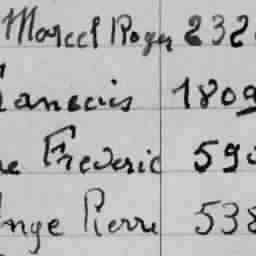 Marcel Roger 232
François 1809
Frederic 590
Ange Pierre 538